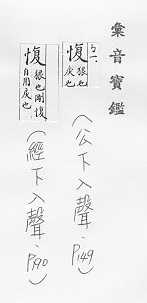 彙音寶鑑
ㄅㄧˋ
愎 狠也
戾也
(公下入聲·P149)
愎 狠也剛愎
自用戾也
(經下入聲·P190)